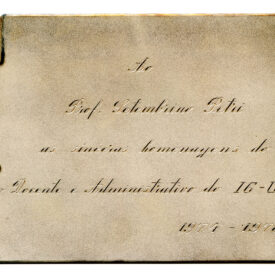 Ao
Prof. Setembrino Petri
as sinceras homenagens do
Docente e Administrativo do IG-U